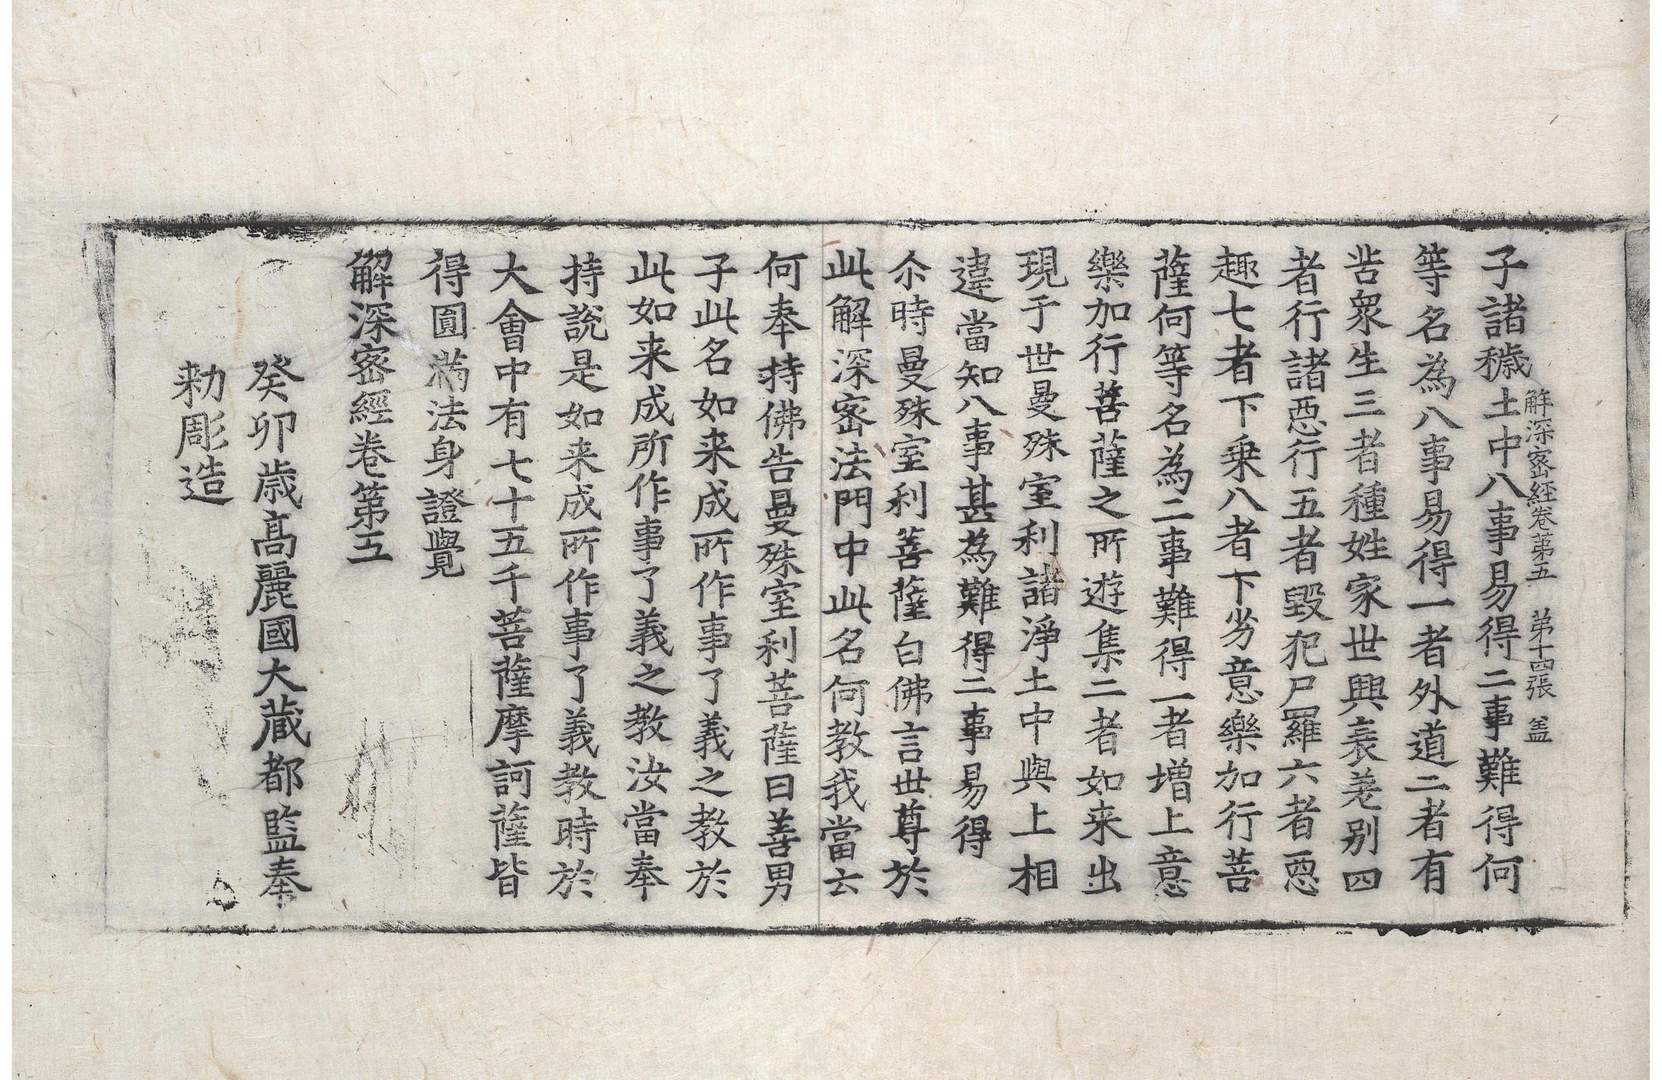 解深密経卷第五　第十四張　盖
子諸穢土中八事易得二事難得何
等名為八事易得一者外道二者有
苦衆生三者種姓家世興衰差別四
者行諸惡行五者毀犯尸羅六者惡
趣七者下乗八者下劣意樂加行菩
薩何等名為二事難得一者增上意
樂加行菩薩之所遊集二者如来出
現于世曼殊室利諸淨土中與上相
違當知八事甚為難得二事易得
尒時曼殊室利菩薩白佛言世尊於
此解深密法門中此名何教我當云
何奉持佛告曼殊室利菩薩曰善男
子此名如来成所作事了義之教於
此如来成所作事了義之教汝當奉
持說是如来成所作事了義教時於
大會中有七十五千菩薩摩訶薩皆
得圓滿法身證覺
解深密經卷第五
癸卯歳高麗國大藏都監奉
勅彫造